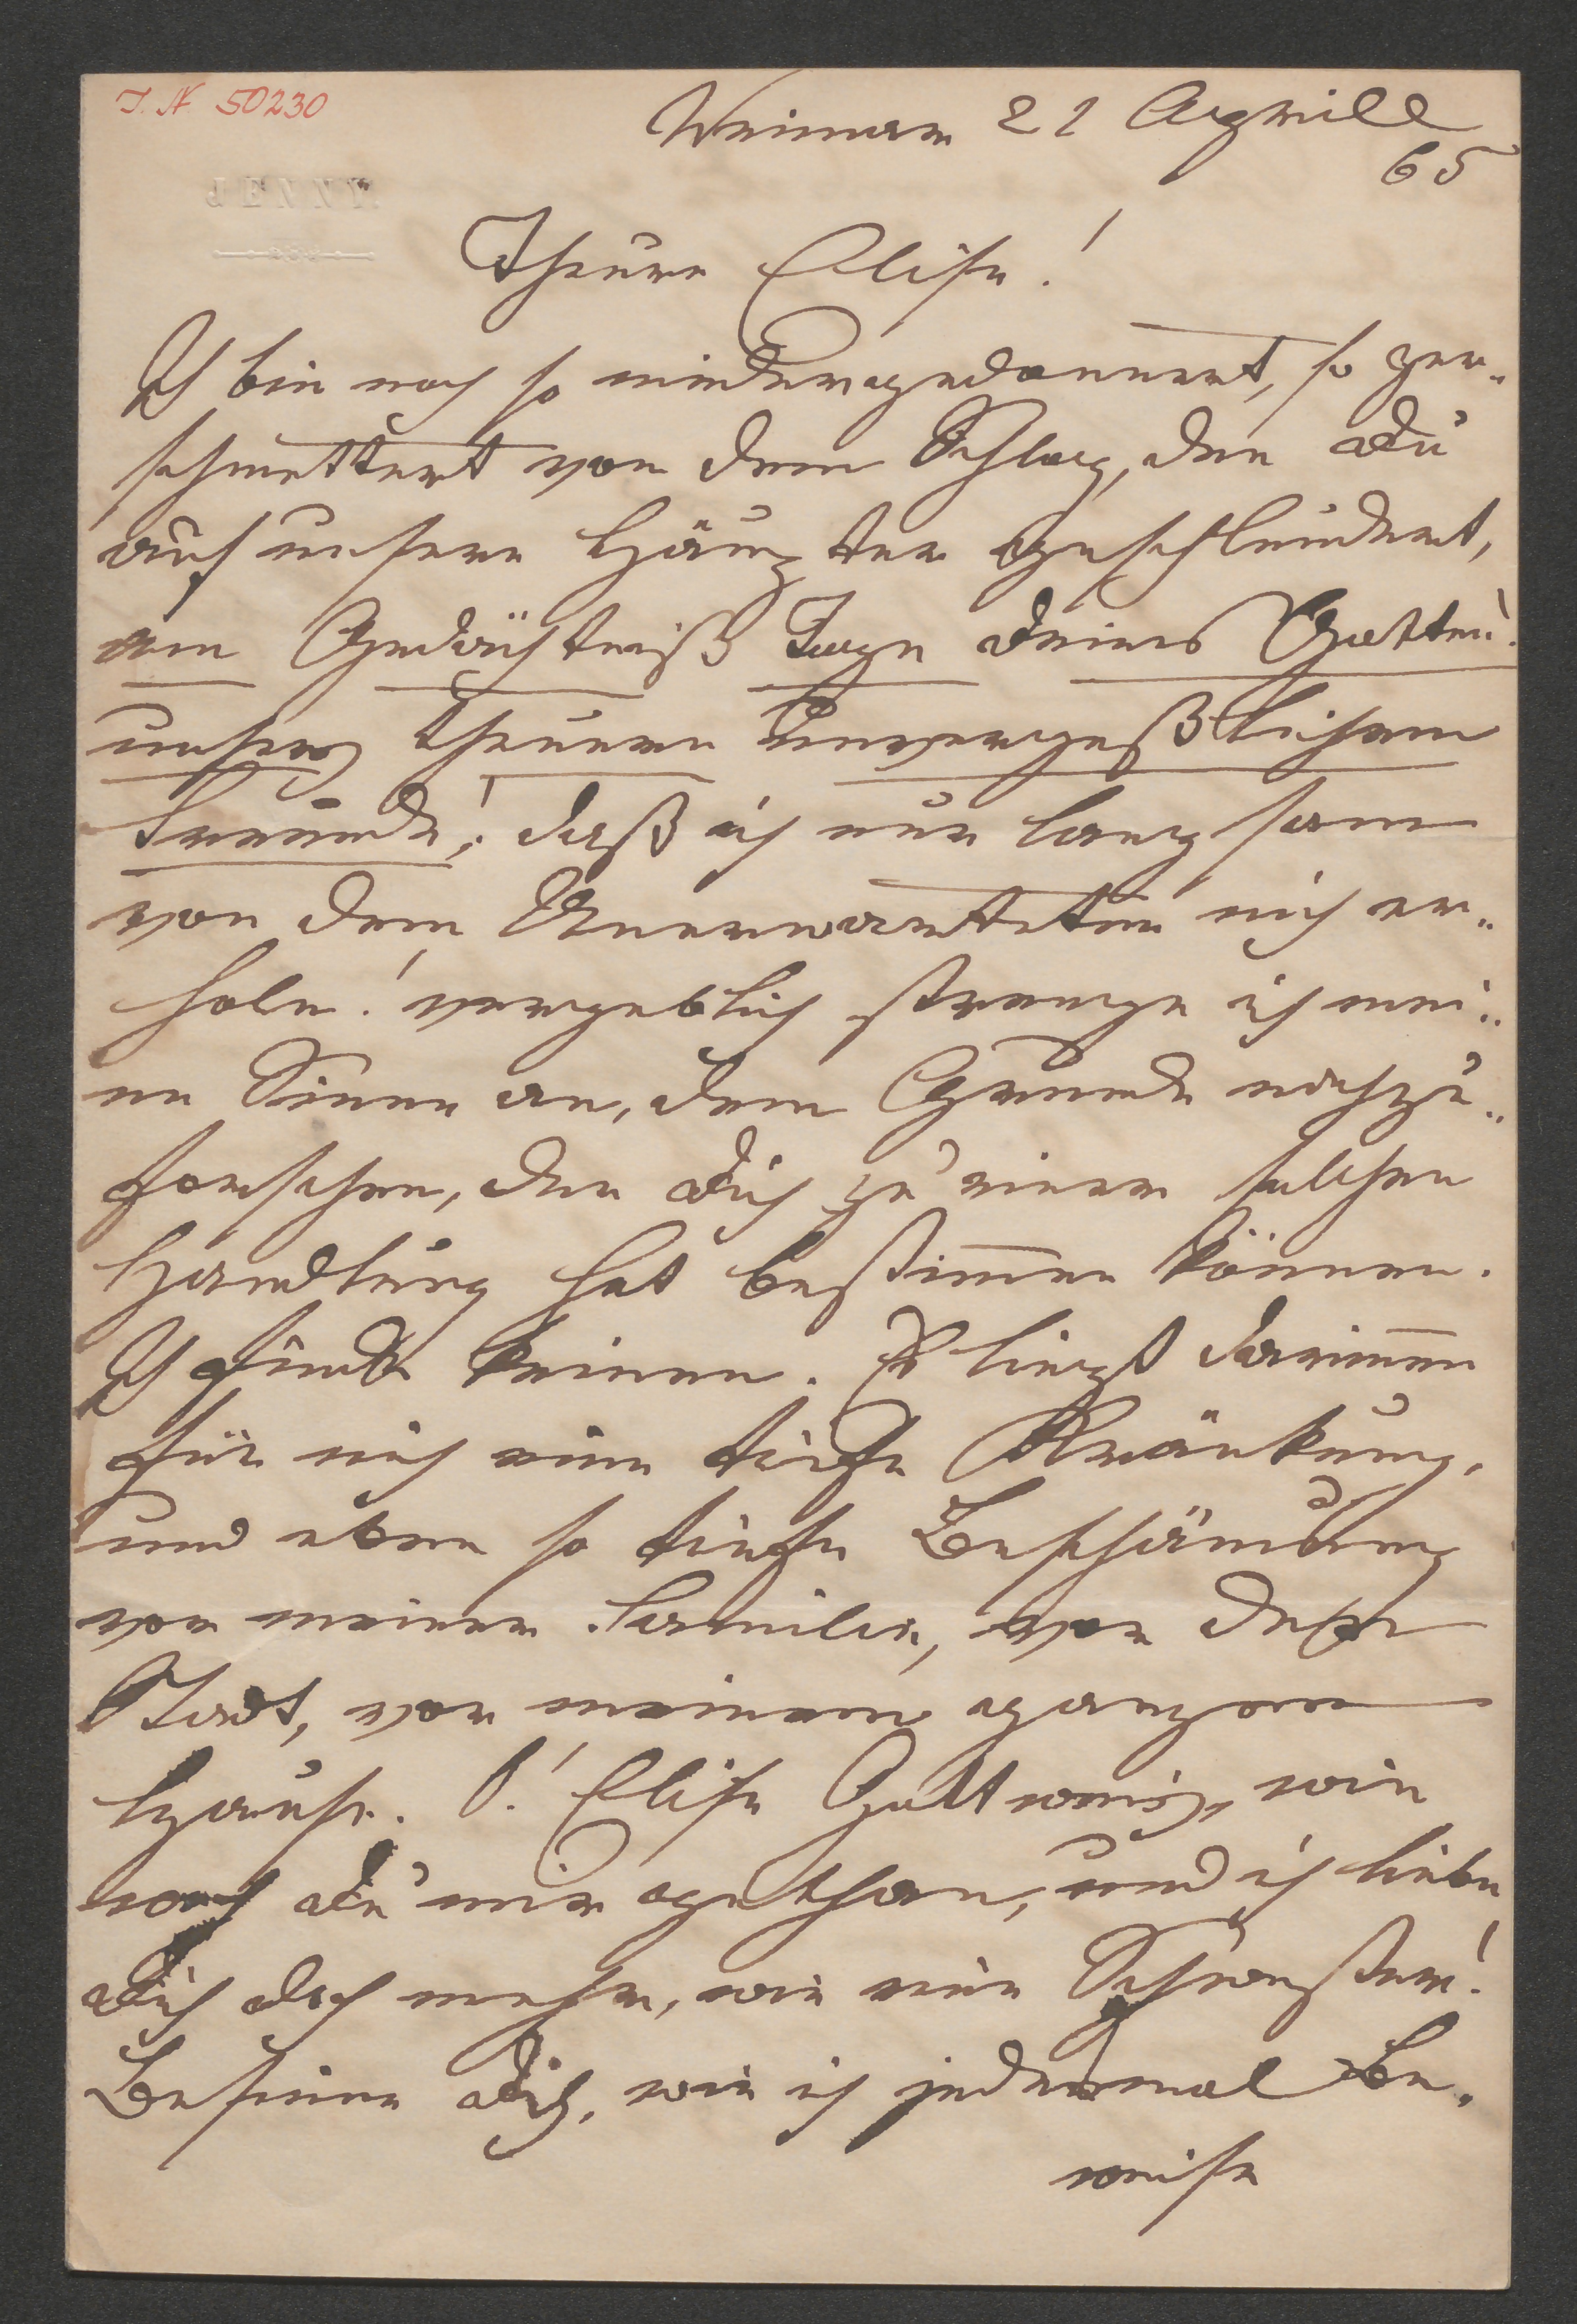 J. N. 50230
Weimar 21 Aprill
65
JENNY.
Theure Elise!
Ich bin noch so niedergedonnert, so zer-
schmettert von dem Schlag, den Du
auf unsere Häupter geschleudert,
am Gedächtniß Tage deines Gatten!
unsers theuern unvergeßlichen
Freundes! daß ich nur langsam
von dem Unerwarteten mich er-
hole! vergeblich strenge ich mei-
ne Sinne an, dem Grunde nachzu-
forschen, der Dich zu einer solchen
Handlung hat bestimmen können.
Ich finde keinen. Es liegt darinnen
für mich eine tiefe Kränkung,
und eben so tiefe Beschämung
vor meiner Familie, vor der
Stadt, vor meinem ganzen
Hause. O! Elise Gott weiß, wie
weh Du mir gethan, und ich liebe
Dich doch mehr, wie eine Schwester!
Besinne Dich, wie ich jedesmal Be-
weise